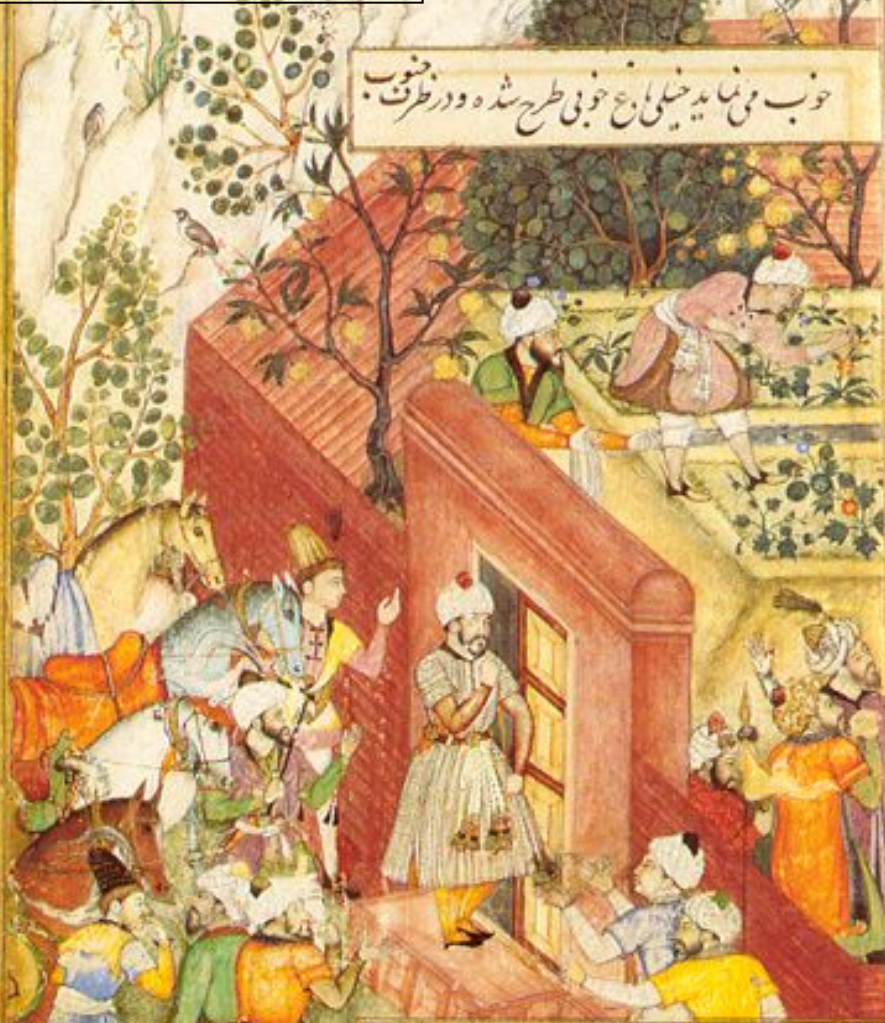 خوب می نماید خیلی باغ خوبی طرح شده و در طرف جنوب